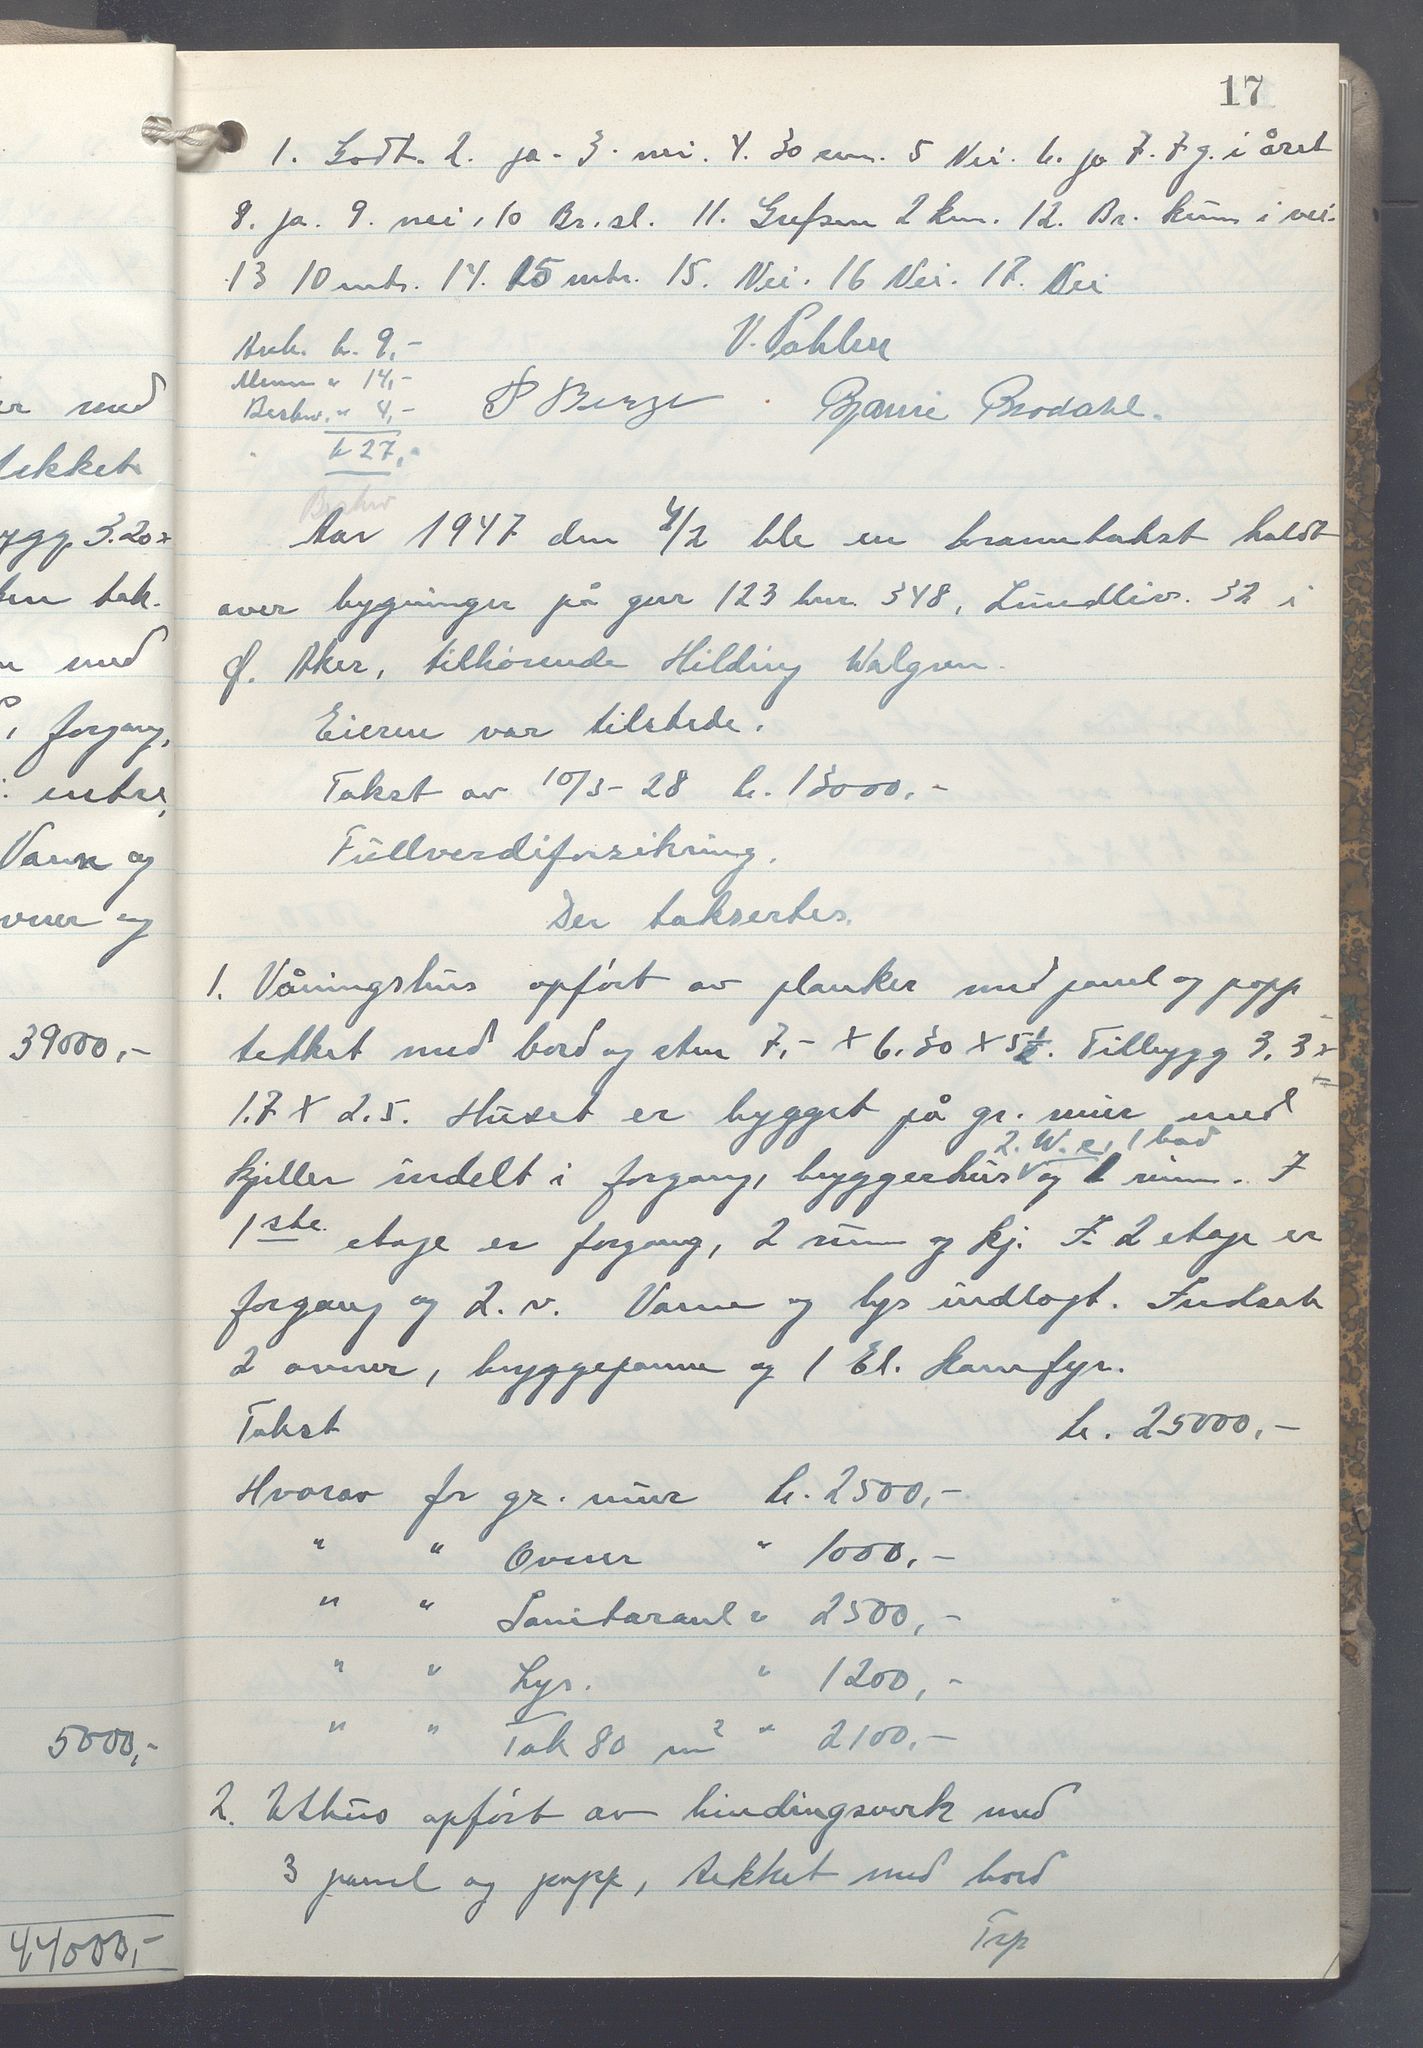 17
1. Godt. 2. ja. 3. nei. 4. 30 cm. 5 Nei. 6. ja 7. 7 g. i året
8. ja. 9. nei, 10 Br.sl. 11. Grefsen 2 km. 12. Br. kum i vei.
13 10 mtr. 14. 15 mtr. 15. Nei. 16 Nei. 17. Nei
V. Pahlen
kr. 9,-
" 14,-
Beskr. " 4,-
P Berge Bjarne Brodahl.
kr 27,-
Beskr
Aar 1947 den 4/2 ble en branntakst holdt
over bygninger på gnr 123 bnr. 348, Lundliv. 32 i
Ø. Aker, tilhørende Hilding Walgren.
Eieren var tilstede.
Takst av 10/3-28 kr. 13000.-
Fullverdiforsikring.
Der taksertes.
1. Våningshus opført av planker med panel og papp
tekket med bord og sten 7,- x 6.30 x 5½. Tilbygg 3.3 x
1.7 x 2.5. Huset er bygget på gr. mur med
2. W.c, 1 bad
kjeller indelt i forgang, bryggerhus og 1 rum. I
1ste etage er forgang, 2 rum og kj. I 2 etage er
forgang og 2. v. Vann og lys indlagt. Indsatt
2 ovner, bryggepanne og 1 El. komfyr.
Takst kr. 25000,-
Hvorav for gr. mur kr. 2500,-
" " Ovner " 1000,-
" " Sanitæranl " 2500,-
" " Lys. " 1200,-
" " Tak 80 m² " 2100,-
2. Uthus opført av bindingsverk med
3 panel og papp, tekket med bord
Trp
er med
tekket
ygg 3.20 x
tak.
med
, forgang,
: entre,
Vann og
ovner og
39000,-
5000,-
44000,-